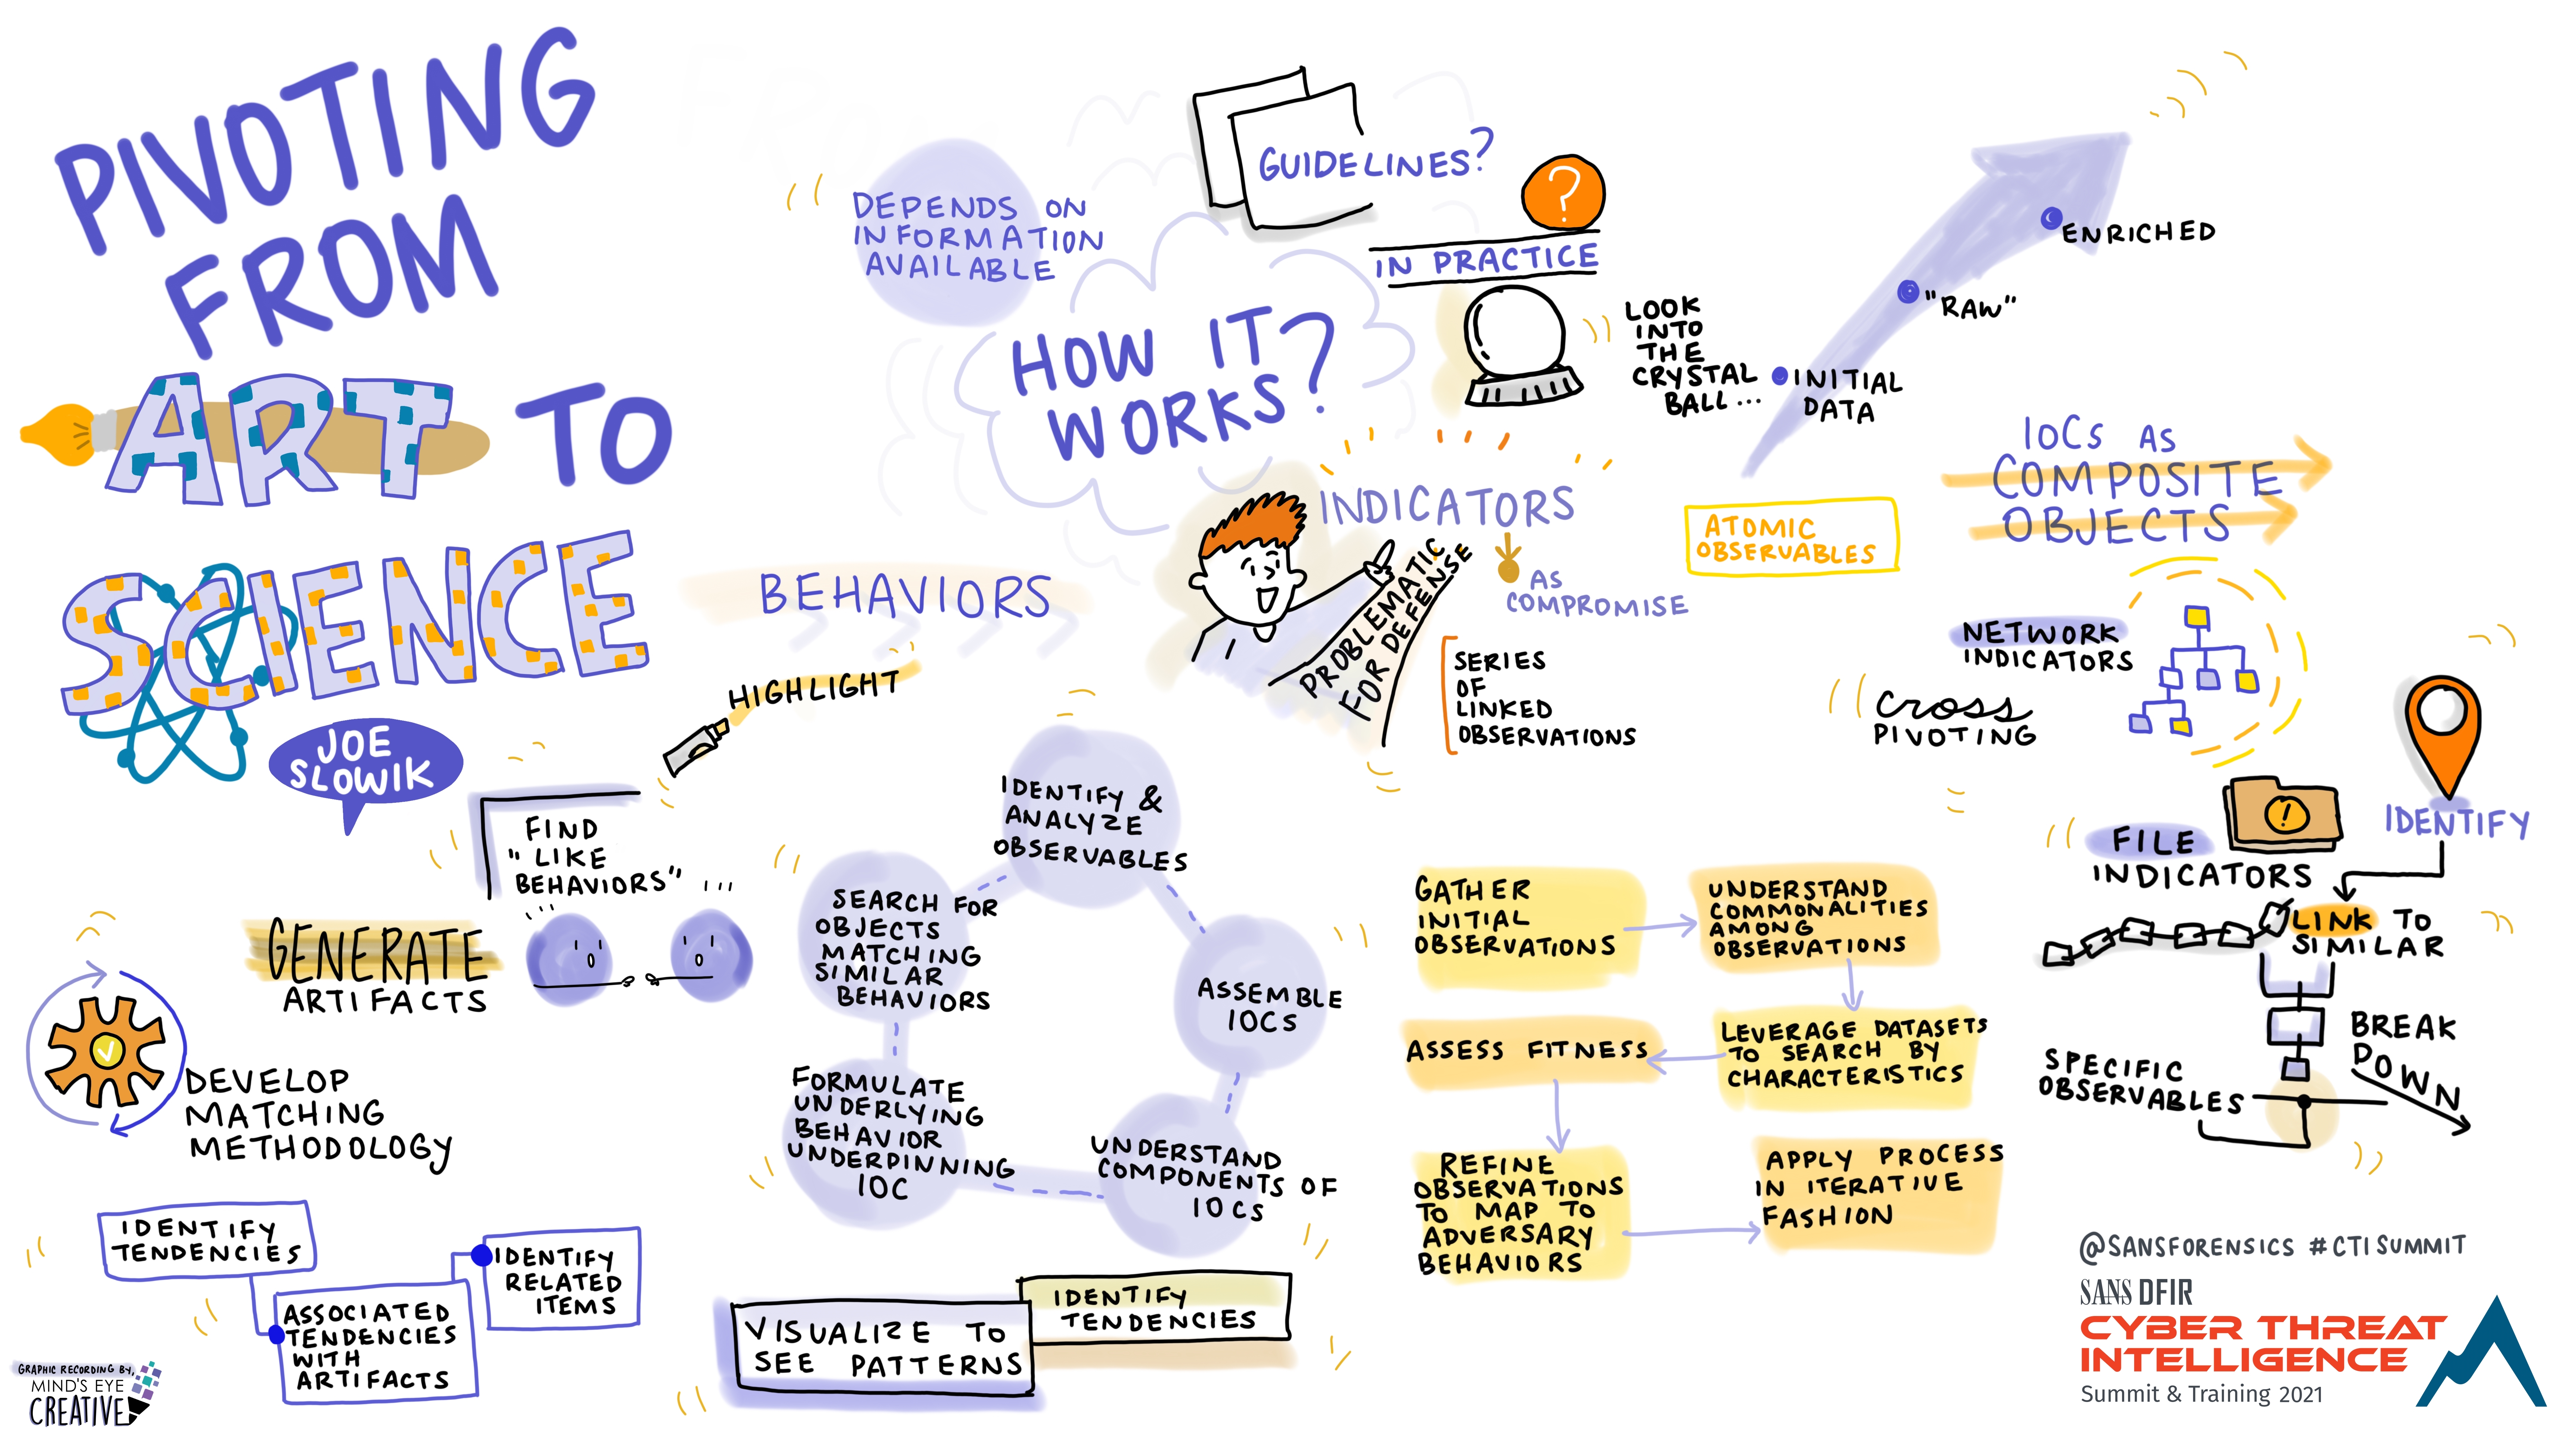 PIVOTING
FROM
ART TO
SCIENCE
JOE
SLOWIK
DEPENDS ON
INFORMATION
AVAILABLE
GUIDELINES?
?
IN PRACTICE
HOW IT
WORKS?
LOOK
INTO
THE
CRYSTAL
BALL...
ENRICHED
"RAW"
INITIAL
DATA
INDICATORS
AS
COMPROMISE
PROBLEMATIC
FOR DEFENSE
SERIES
OF
LINKED
OBSERVATIONS
ATOMIC
OBSERVABLES
IOCs AS
COMPOSITE
OBJECTS
NETWORK
INDICATORS
CROSS
PIVOTING
FILE
INDICATORS
!
IDENTIFY
LINK TO
SIMILAR
BREAK
DOWN
SPECIFIC
OBSERVABLES
BEHAVIORS
HIGHLIGHT
FIND
"LIKE
BEHAVIORS"
GENERATE
ARTIFACTS
DEVELOP
MATCHING
METHODOLOGY
IDENTIFY
TENDENCIES
ASSOCIATED
TENDENCIES
WITH
ARTIFACTS
IDENTIFY
RELATED
ITEMS
IDENTIFY &
ANALYZE
OBSERVABLES
ASSEMBLE
IOCs
UNDERSTAND
COMPONENTS OF
IOCs
FORMULATE
UNDERLYING
BEHAVIOR
UNDERPINNING
IOC
SEARCH FOR
OBJECTS
MATCHING
SIMILAR
BEHAVIORS
VISUALIZE TO
SEE PATTERNS
IDENTIFY
TENDENCIES
GATHER
INITIAL
OBSERVATIONS
UNDERSTAND
COMMONALITIES
AMONG
OBSERVATIONS
LEVERAGE DATASETS
TO SEARCH BY
CHARACTERISTICS
ASSESS FITNESS
REFINE
OBSERVATIONS
TO MAP TO
ADVERSARY
BEHAVIORS
APPLY PROCESS
IN ITERATIVE
FASHION
@SANSFORENSICS #CTISUMMIT
SANS DFIR
CYBER THREAT
INTELLIGENCE
Summit & Training 2021
GRAPHIC RECORDING BY,
MIND'S EYE
CREATIVE